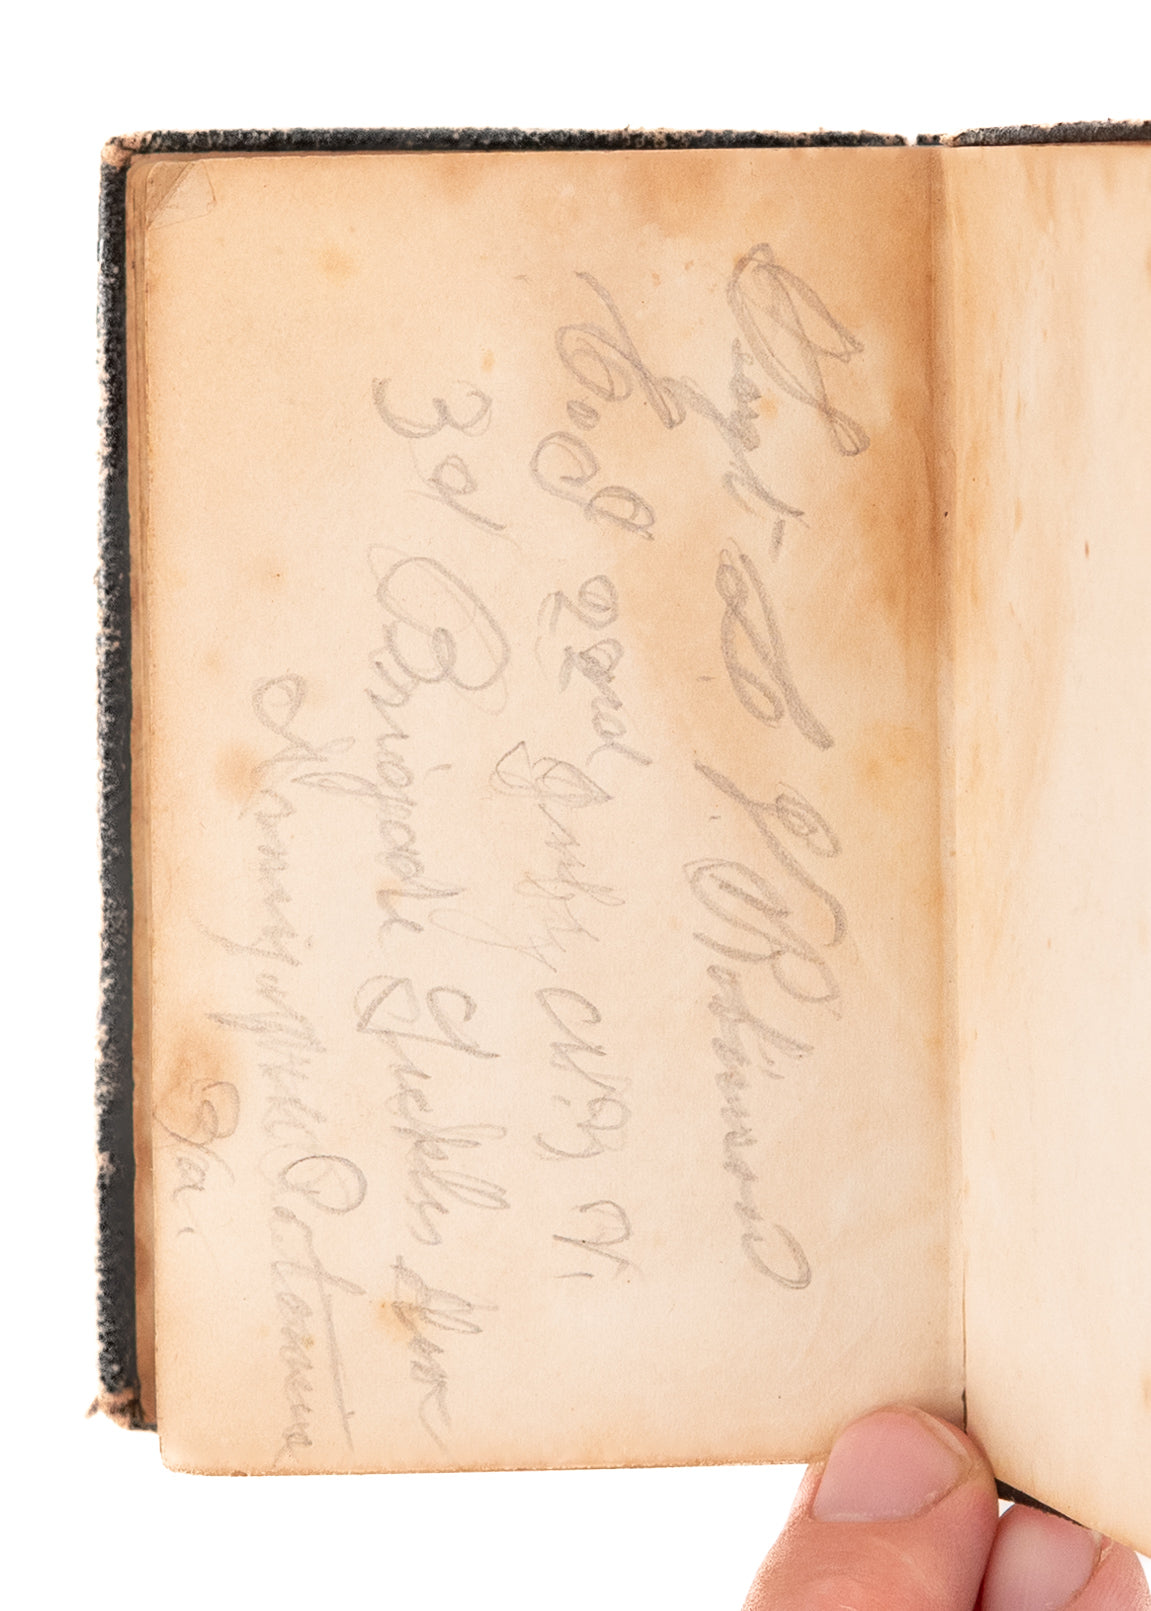 Capt S. P. Robinson
Co. G 2nd Infty N.Y. V.
3d Brigade Sickles Div
Army of the Potomac
Va.